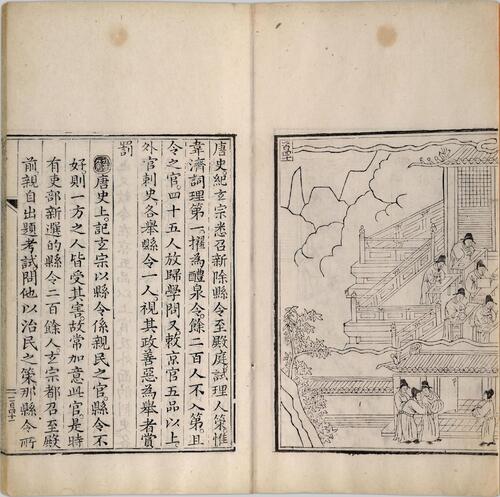 唐史紀玄宗悉召新除縣令至殿庭試理人策惟
韋濟詞理第一擢為醴泉令餘二百人不入第且
令之官。四十五人放歸學問又敕京官五品以上
外官刺史各舉縣令一人。視其政善惡為舉者賞
罰
解唐史上。記玄宗以縣令係親民之官。縣令不
好。則一方之人皆受其害。故常加意此官是時
有吏部新選的縣令二百餘人。玄宗都召至殿
前。親自出題考試。問他以治民之策。那縣令所